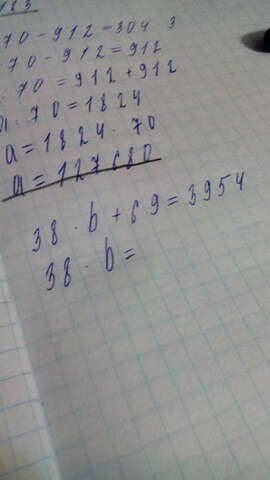 183
70 - 912 = 304 · 3
70 - 912 = 912
: 70 = 912 + 912
a : 70 = 1824
a = 1824 · 70
a = 127680
38 · b + 69 = 3954
38 · b =